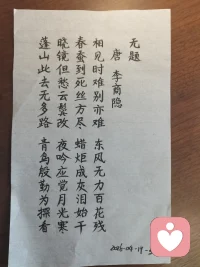 无题
唐 李商隐
相见时难别亦难 东风无力百花残
春蚕到死丝方尽 蜡炬成灰泪始干
晓镜但愁云鬓改 夜吟应觉月光寒
蓬山此去无多路 青鸟殷勤为探看